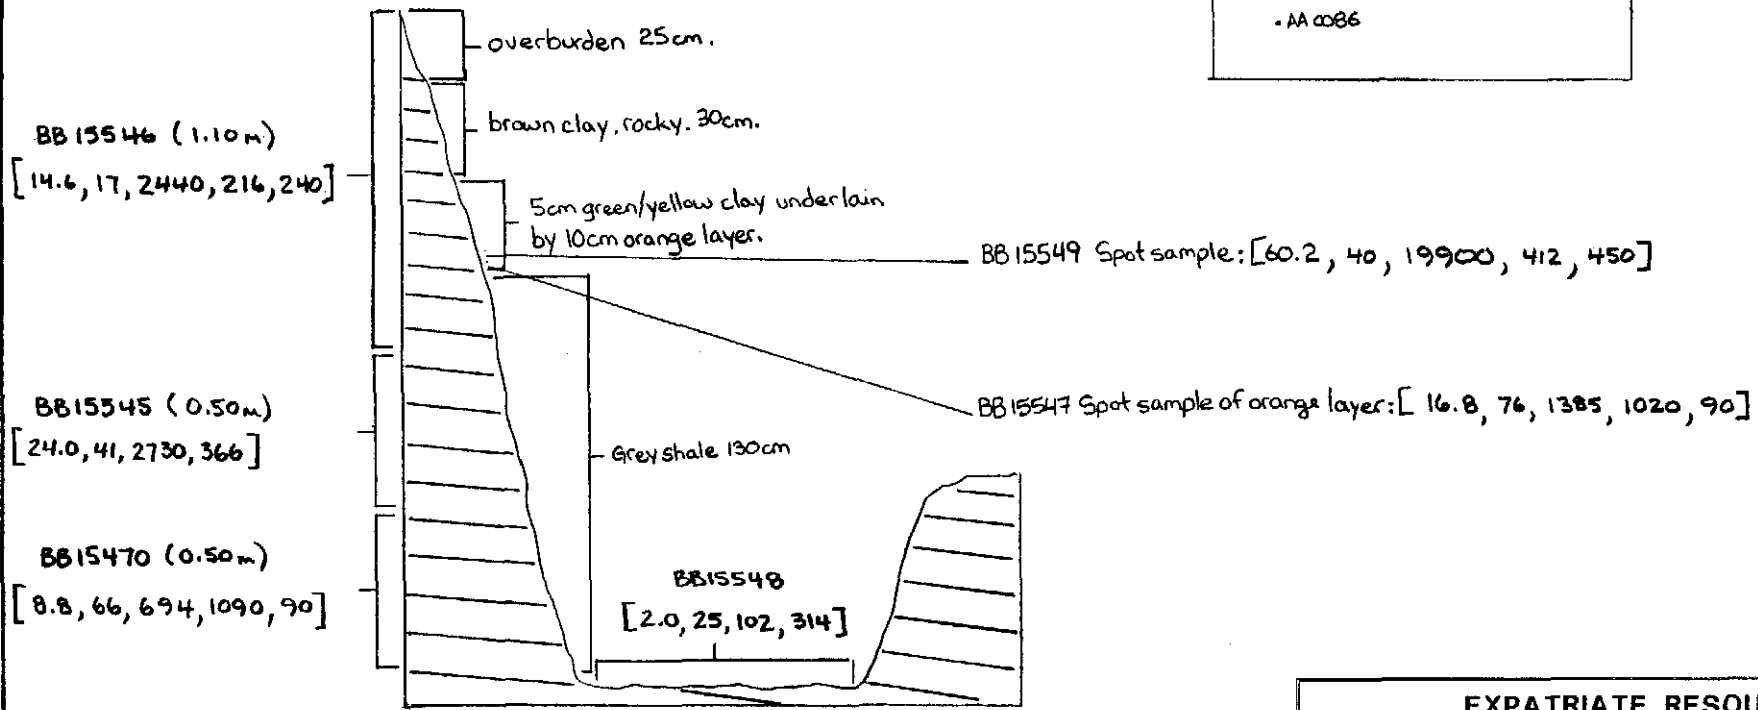 overburden 25cm.
• AA 0086
brown clay, rocky. 30cm.
BB 15546 (1.10m)
[14.6, 17, 2440, 216, 240]
5cm green/yellow clay underlain
by 10cm orange layer.
BB 15549 Spot sample: [60.2, 40, 19900, 412, 450]
BB 15547 Spot sample of orange layer: [16.8, 76, 1385, 1020, 90]
BB15545 (0.50m)
[24.0, 41, 2730, 366]
Grey shale 130cm
BB15470 (0.50m)
[8.8, 66, 694, 1090, 90]
BB15548
[2.0, 25, 102, 314]
EXPATRIATE RESOU